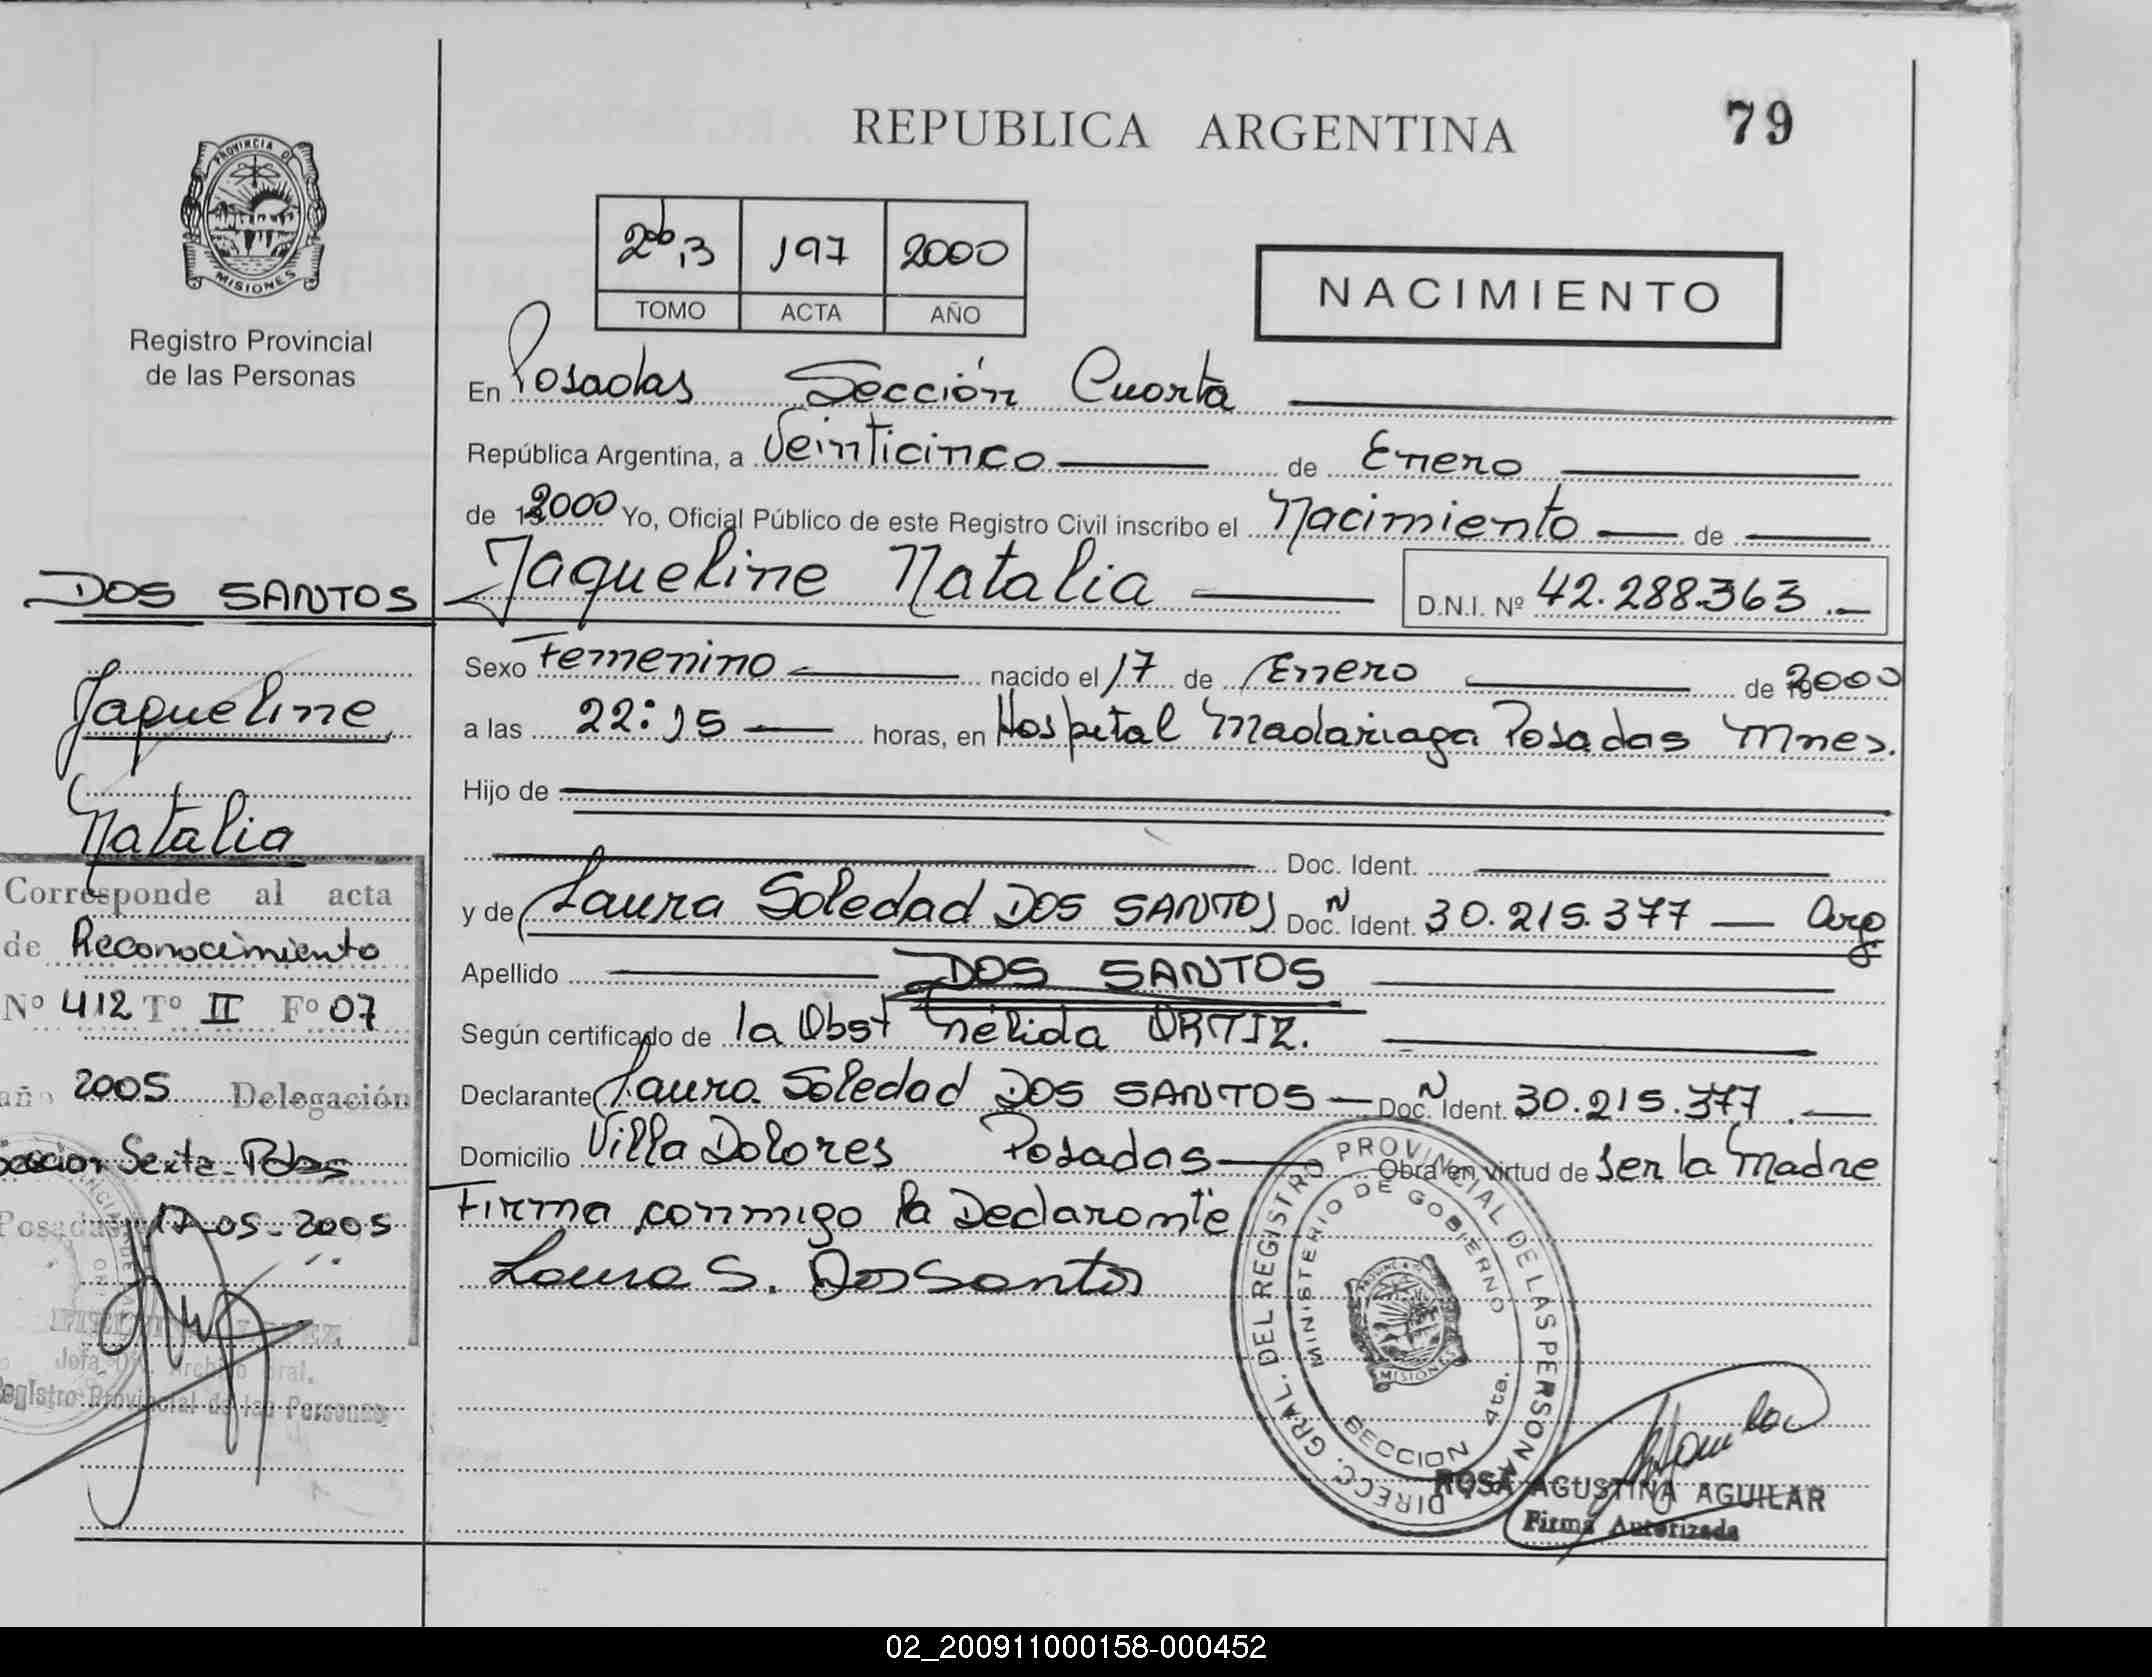 REPUBLICA ARGENTINA
79
PROVINCIA DE
MISIONES
Registro Provincial
de las Personas
197 2000
TOMO ACTA AÑO
NACIMIENTO
En Posadas Sección Cuarta
República Argentina, a Veinticinco de Enero
de 2000 Yo, Oficial Público de este Registro Civil inscribo el Nacimiento de
DOS SANTOS Jaqueline Natalia D.N.I. Nº 42.288.363
Sexo Femenino nacido el 17 de Enero de 2000
a las 22:15 horas, en Hospital Madariaga Posadas Mnes.
Hijo de
Doc. Ident.
y de Laura Soledad DOS SANTOS Doc. N Ident. 30.215.377 Arg
Apellido DOS SANTOS
Según certificado de la Obst Nélida ORTIZ.
Declarante Laura Soledad DOS SANTOS Doc. N Ident. 30.215.377
Domicilio Villa Dolores Posadas Obra en virtud de ser la Madre
Firma conmigo la Declarante
Laura S. Dos Santos
Jaqueline
Natalia
Corresponde al acta
de Reconocimiento
Nº 412 Tº II Fº 07
año 2005 Delegación
Sexta Pdas
Posadas 17-05-2005
Registro Provincial de las Personas
DIRECC. GRAL. DEL REGISTRO PROVINCIAL DE LAS PERSONAS
MINISTERIO DE GOBIERNO
MISIONES
SECCION 4ta.
ROSA AGUSTINA AGUILAR
Firma Autorizada
02_200911000158-000452